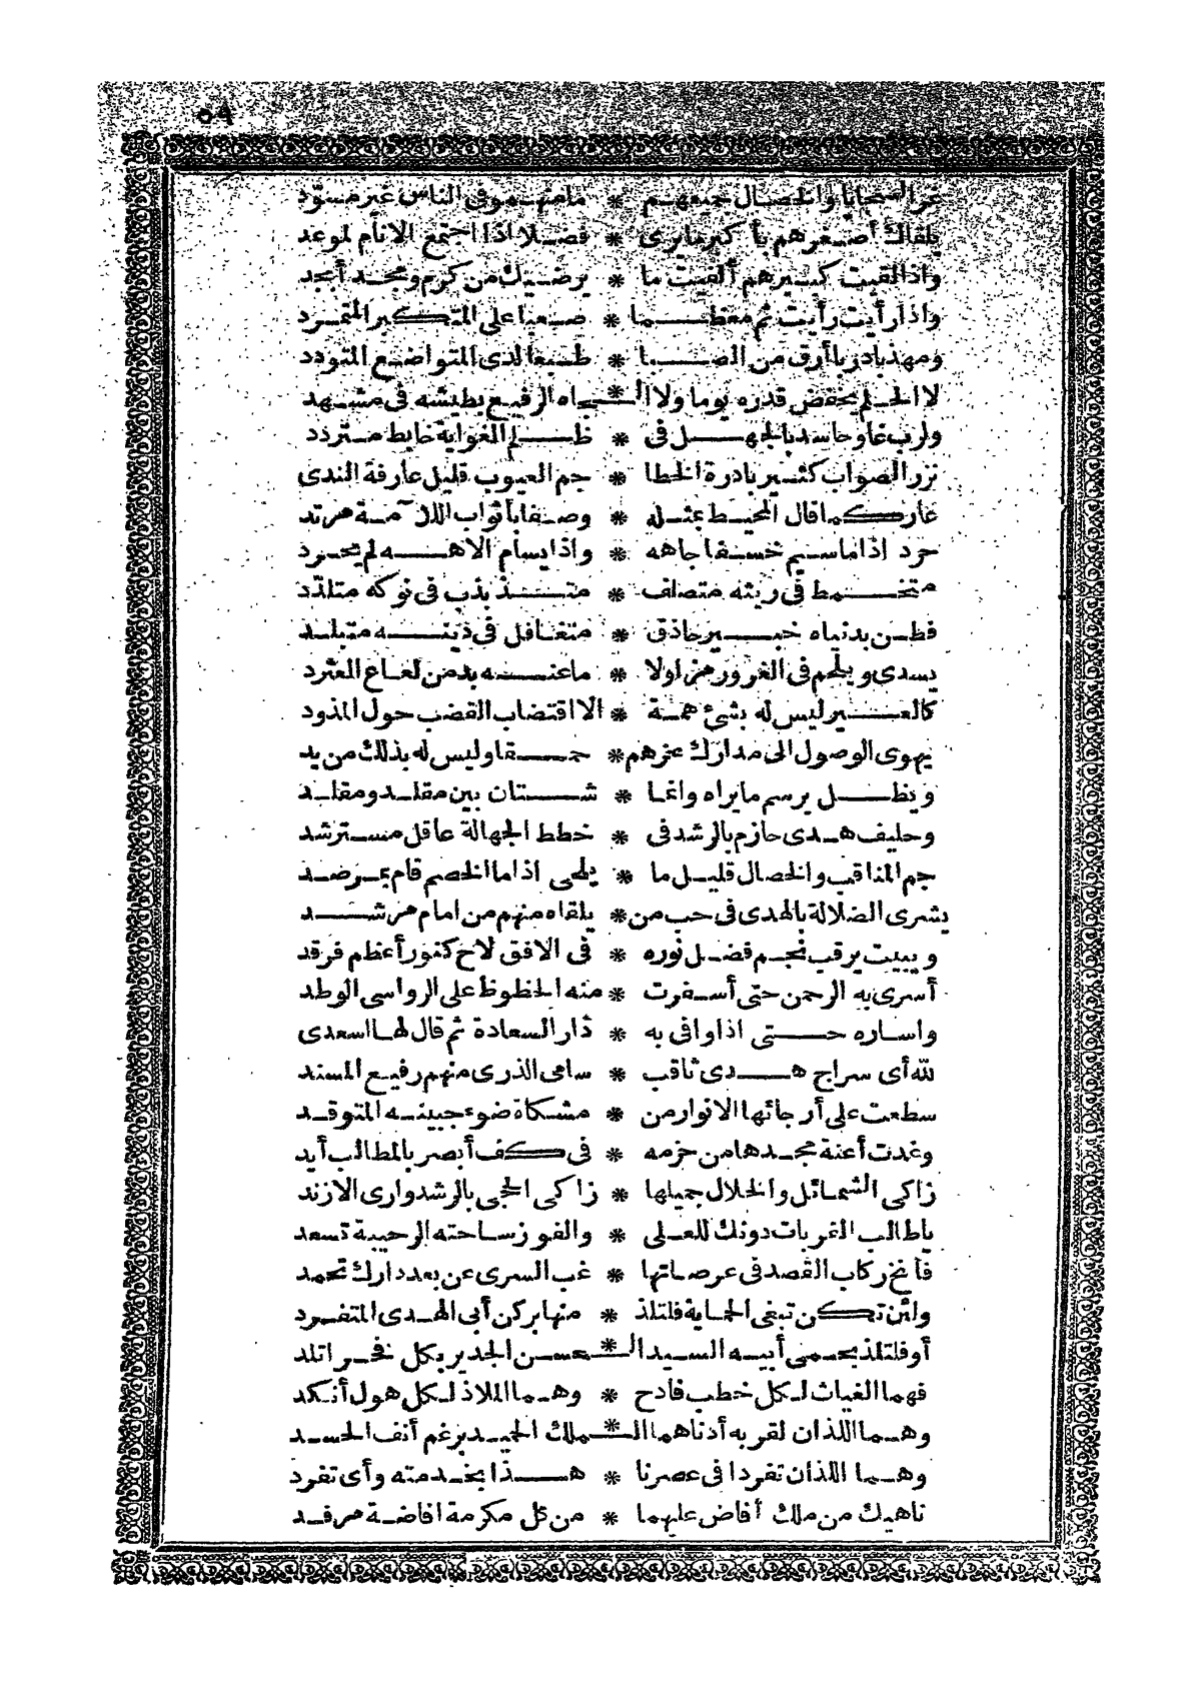 ٥٩
غر السجايا والخصال جميعهم * ما منهمو فى الناس غير مسوّد
يلقاك أصغرهم بأكبر مايرى * فضلا اذا اجتمع الانام لموعد
واذا لقيت كبيرهم ألفيت ما * يرضيك من كرم ومجد أمجد
واذا رأيت رأيت ثم معظما * صعبا على المتكبر المتمرد
ومهذبا دربا أرق من الصبا * طبعا لدى المتواضع المتودد
لا الحلم يخفض قدره يوما ولا ال * جاه الرفيع يطيشه فى مشهد
ولرب غاو حاسد بالجهل فى * ظلم الغواية خابط متردد
نزر الصواب كثير بادرة الخطا * جم العيوب قليل عارفة الندى
عار كما قال المحيط بمثله * وصفا بأثواب اللآمة مرتد
حرد اذا ما سيم خسفا جاهه * واذا يسام الاهه لم يحرد
متخمط فى ريثه متصلف * متذبذب فى نوكه متلدد
فطن بدنياه خبير حاذق * متغافل فى دينه متبلد
يسدى ويلحم فى الغرور هزاولا * ما عنه بد من لعاع العثرد
كالعير ليس له بشئ همة * الا اقتضاب القضب حول المذود
يهوى الوصول الى مدارك عزهم * حمقا وليس له بذلك من يد
ويظل يرسم ما يراه وانما * شتان بين مقلد ومقلد
وحليف هدى حازم بالرشد فى * خطط الجهالة عاقل مسترشد
جم المناقب والخصال قليل ما * يلحى اذا ما الخصم قام بمرصد
يشرى الضلالة بالهدى فى حب من * يلقاه منهم من امام مرشد
ويبيت يرقب نجم فضل نوره * فى الافق لاح كنور أعظم فرقد
أسرى به الرحمن حتى أسفرت * منه الحظوظ على الرواسى الوطد
واساره حتى اذا وافى به * دار السعادة ثم قال لها اسعدى
لله أى سراج هدى ثاقب * سامى الذرى منهم رفيع المسند
سطعت على أرجائها الانوار من * مشكاة ضوء جبينه المتوقد
وغدت أعنة مجدها من حزمه * فى كف أبصر بالمطالب أيد
زاكى الشمائل والخلال جميلها * زاكى الحجى بالرشد وارى الازند
ياطالب القربات دونك للعلى * والفوز ساحته الرحيبة تسعد
فأنخ ركاب القصد فى عرصاتها * غب السرى عن بعد دارك تحمد
ولئن تكن تبغى الحماية فلتلذ * منها بركن أبى الهدى المتفرد
أو فلتلذ بحمى أبيه السيد ال * حسن الجدير بكل فخر اتلد
فهما الغياث لكل خطب فادح * وهما الملاذ لكل هول أنكد
وهما اللذان لقربه أدناهما ال * ملك الحميد برغم أنف الحسد
وهما اللذان تفردا فى عصرنا * هذا بخدمته وأى تفرد
ناهيك من ملك أفاض عليهما * من كل مكرمة افاضة مرفد